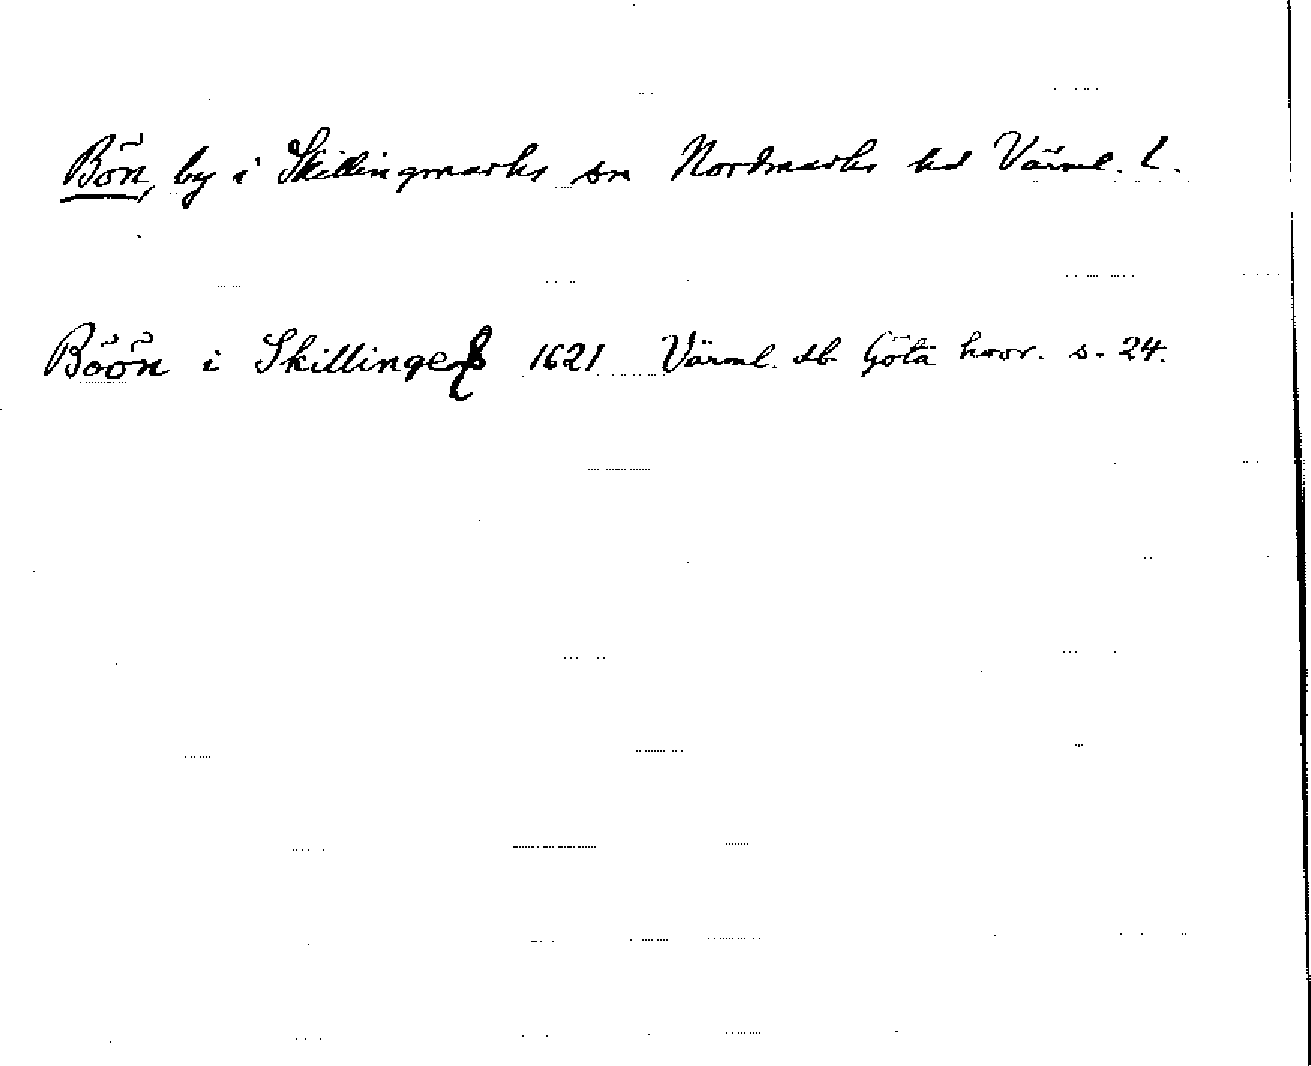 Bön, by i Skillingmarks sn Nordmarks hd Värml. l.
Böön i Skillinge 1621 Värml. sb Göta hovr. s. 24.